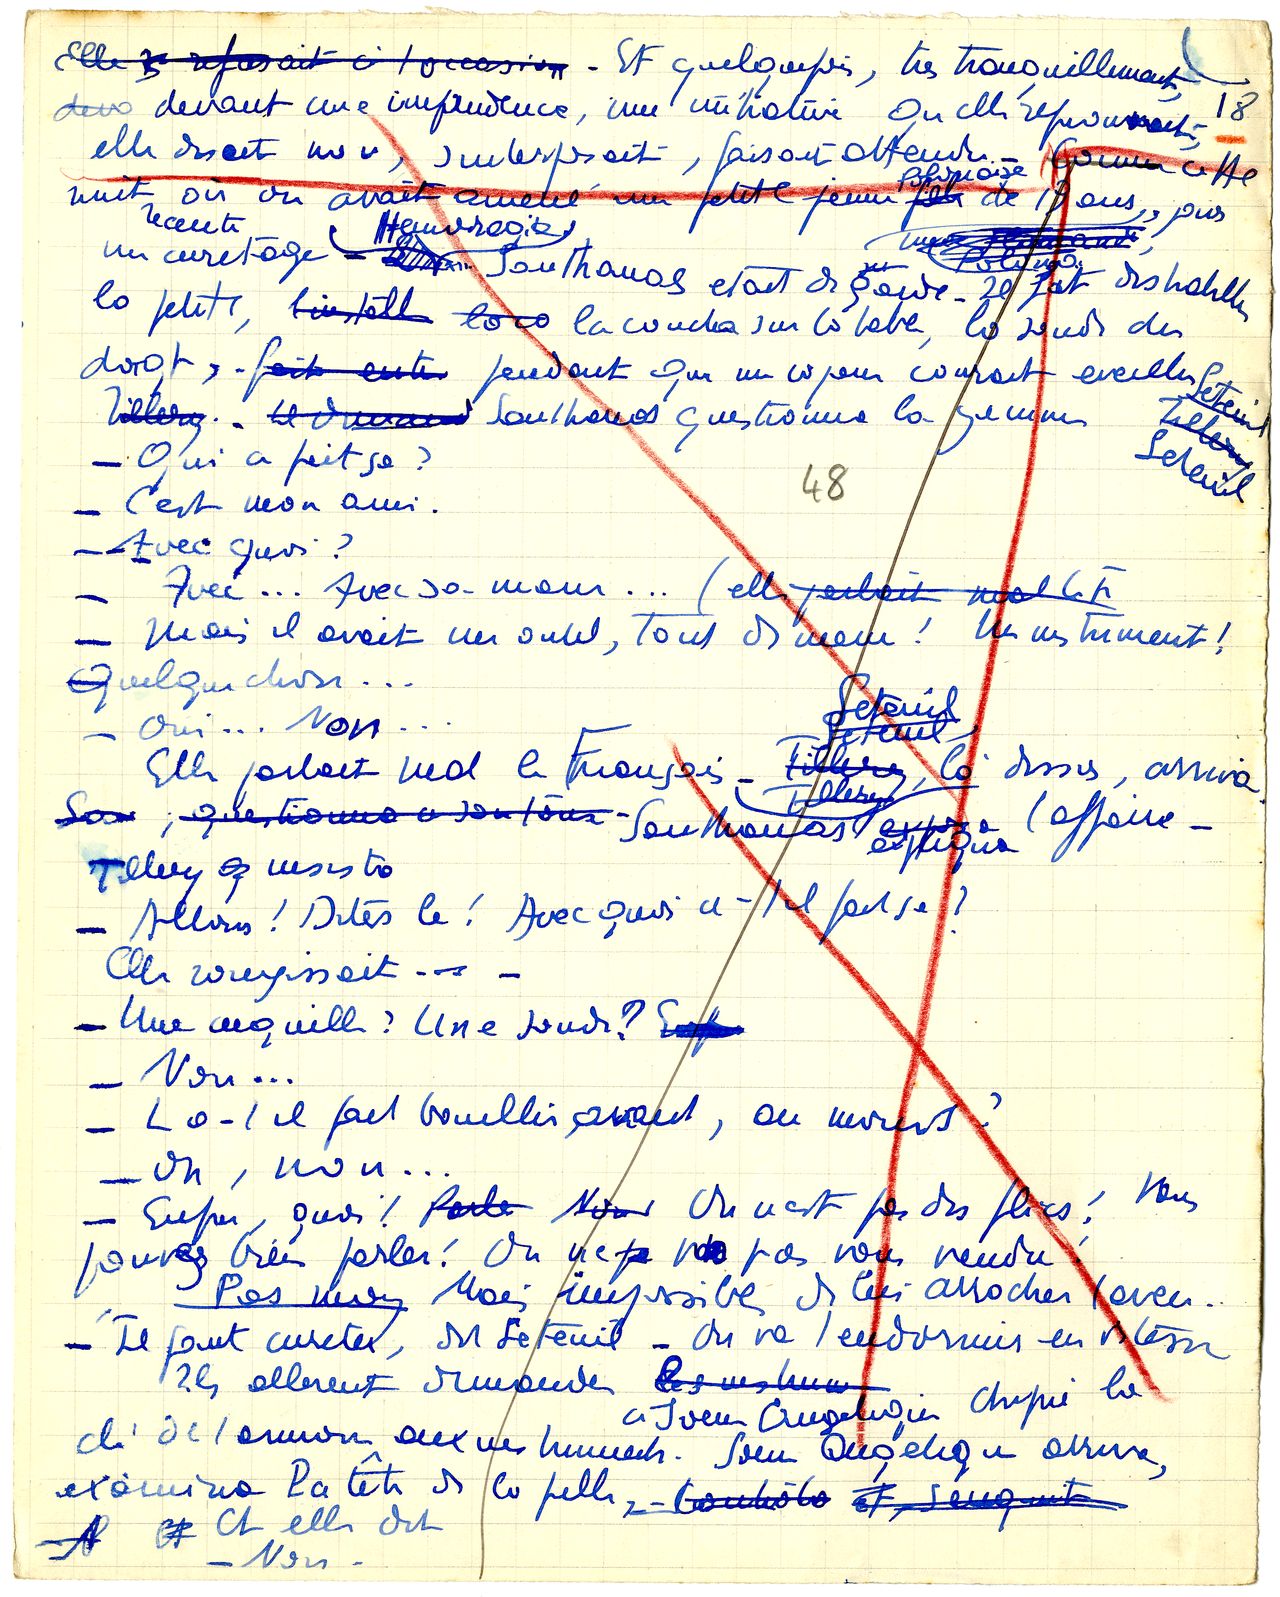 Elle se refusait à l'occasion - Et quelquefois, très tranquillement,
18
devant une imprudence, une initiative qu'elle réprouvait,
elle disait non, s'interposait, faisait attendre - Comme cette
nuit où on avait amené une petite jeune polonaise fille de 17 ans, pour
un curetage - récente Hémorragie Southanas était de garde - Il fit déshabiller
Polonaise
la petite, l'installa la coucha sur la table, la sonda du
doigt, - fait entrer pendant qu'un copain courait éveiller Seteuil
Tillery. - Il demanda Southanas questionna la gamine
Tillery
Seteuil
- Qui a fait ça ?
- C'est mon ami.
48
- Avec quoi ?
- Avec ... Avec sa main ... (elle parlait mal le fr
- Mais il avait un outil, tout de même ! Un instrument !
Quelque chose ...
- Oui ... Non ...
Seteuil
Seteuil
Elle parlait mal le Français - Tillery, là dessus, arriva.
Tillery
questionna à son tour - Southanas exposa l'affaire -
expliqua
Tillery insista
- Allons ! Dites le ! Avec quoi a-t-il fait ça ?
Elle rougissait - - -
- Une aiguille ? Une sonde ?
- Non ...
- L'a-t-il fait bouillir, avant, au moins ?
- Oh, non ...
- Enfin, quoi ! Parle Nous On n'est pas des flics ! Vous
pouvez bien parler ! On ne va pas vous vendre !
Pas moy Mais impossible de lui arracher l'aveu..
- Il faut cureter, dit Seteuil - On va l'endormir en vitesse
Ils allèrent demander les instrum
à Soeur Angélique la
clé de l'armoire aux instruments. Soeur Angélique arriva,
examina la tête de la fille, - Contrôla Et, s'enquit
Et elle dit
- Non -